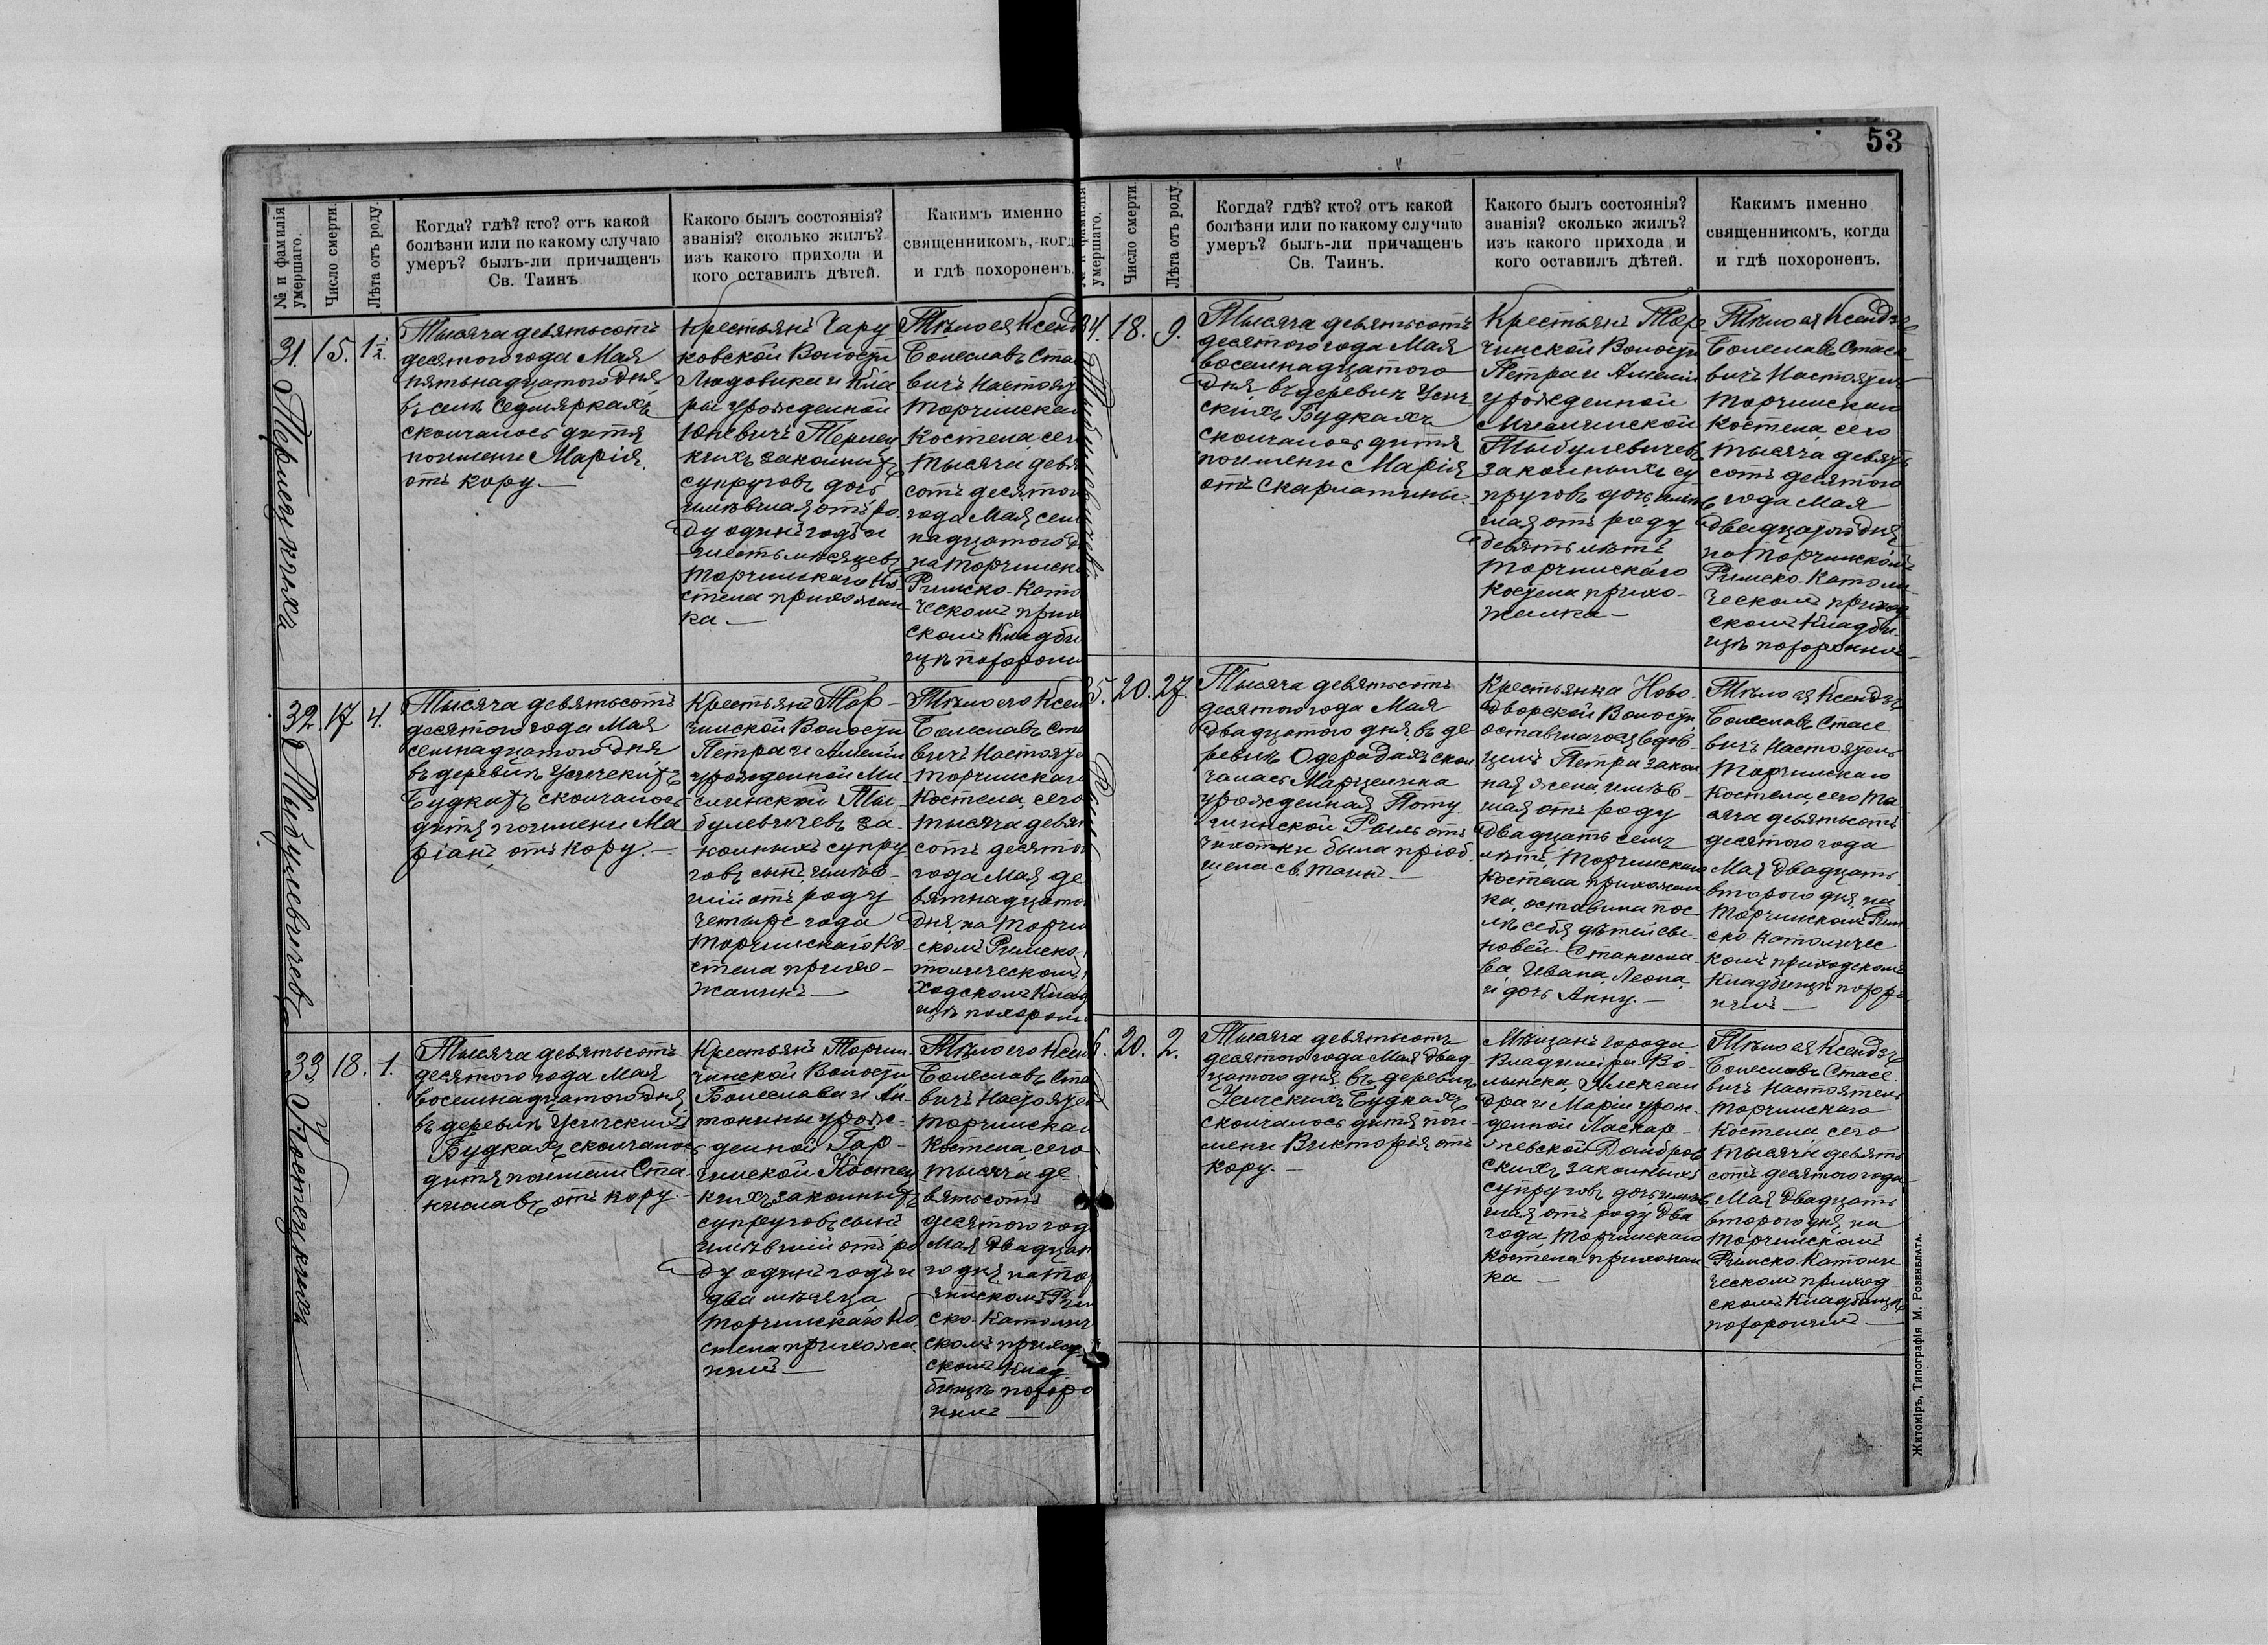 53
№ и фамилія
умершаго.
Число смерти.
Лѣта отъ роду.
Когда? гдѣ? кто? отъ какой
болѣзни или по какому случаю
умеръ? былъ-ли причащенъ
Св. Таинъ.
Какого былъ состоянія?
званія? сколько жилъ?
изъ какого прихода и
кого оставилъ дѣтей.
Какимъ именно
священникомъ, когд
и гдѣ похороненъ.
31.
15.
1½.
Тысяча девятьсотъ
десятого года Мая
пятьнадцатого дня
въ селѣ Седмяркахъ
скончалось дитя
по имени Марія
отъ кору.—
Крестьянъ Чару
ковской Волости
Людовика и Кла
ры урожденной
законныхъ
супруговъ дочь
имѣвшая отъ ро
ду одинъ годъ и
шесть мѣсяцевъ
Торчинскаго Ко
стела прихожан
ка.—
Тѣло ея Ксенд
Болеславъ Ста
вичъ Настоят
Торчинскаг
Костела, сего
тысяча девя
сотъ десятог
года Мая сем
надцатого д
на Торчинск
Римско-Като
ческомъ прих
скомъ Кладби
щѣ похорони
32.
17
4.
Тыбулевичевъ
Тысяча девятьсотъ
десятого года Мая
семнадцатого дня
въ деревнѣ Усичскихъ
Будкахъ скончалось
дитя по имени Ма
ріанъ отъ кору.—
Крестьянъ Тор-
чинской Волости
Петра и Амеліи
урожденной Ми-
слинской Ты-
булевичевъ за-
конныхъ супру
говъ сынъ, имѣв-
шій отъ роду
четыре года
Торчинскаго Ко-
стела прихо-
жанинъ—
Тѣло его Ксен
Болеславъ Ста
вичъ Настояте
Торчинскаго
Костела, сего
тысяча девят
сотъ десято
года Мая де
вятнадцатог
дня, на Торчин
скомъ Римско-
толическомъ
ходскомъ Клад
щѣ похорони
33.
18.
1.
Костецкихъ
Тысяча девятьсотъ
десятого года Мая
восемнадцатого дня
въ деревнѣ Усичскихъ
Будкахъ скончалось
дитя по имени Ста
ниславъ отъ кору.—
Крестьянъ Торчин
чинской Волости
Болеслава и Ан-
тонины урож-
денной Гар-
чинской Костец
кихъ законныхъ
супруговъ сынъ
имѣвшій отъ ро
ду одинъ годъ и
два мѣсяца
Торчинскаго Ко
стела прихожа
нинъ—
Тѣло его Ксен
Болеславъ Ста
вичъ Настояте
Торчинскаг
Костела сего
тысяча де-
вятьсотъ
десятого год
Мая двадцат
го дня на То
чинскомъ Рим
ско-Католич
скомъ приход
скомъ Клад
бищѣ похоро
нилъ—
умершаго.
Число смерти.
Лѣта отъ роду.
Когда? гдѣ? кто? отъ какой
болѣзни или по какому случаю
умеръ? былъ-ли причащенъ
Св. Таинъ.
Какого былъ состоянія?
званія? сколько жилъ?
изъ какого прихода и
кого оставилъ дѣтей.
Какимъ именно
священникомъ, когда
и гдѣ похороненъ.
4.
18.
9.
Тыбулевичевъ
Тысяча девятьсотъ
десятого года Мая
восемнадцатого
дня, въ деревнѣ Усич-
скихъ Будкахъ
скончалось дитя
по имени Марія
отъ скарлатины.
Крестьянъ Тор
чинской Волости
Петра и Амеліи
урожденной
Мислинской
Тыбулевичевъ
законныхъ су
пруговъ дочь, имѣв
шая отъ роду
девять лѣтъ
Торчинскаго
Костела прихо-
жанка—
Тѣло ея Ксендзъ
Болеславъ Стасе
вичъ Настоятель
Торчинскаго
Костела, сего
тысяча девять
сотъ десятого
года Мая
двадцатого дня
на Торчинскомъ
Римско-Католи-
ческомъ приход
скомъ Кладби
щѣ похоронилъ—
5.
20.
27.
Рыль
Тысяча девятьсотъ
десятого года Мая
двадцатого дня, въ де
ревнѣ Одерадахъ скон
чалась Марцелина
урожденная
Рыль отъ
чахотки была пріоб
щена св. таинъ—
Крестьянка Ново-
дворской Волости
оставшагося вдов-
цемъ Петра закон
ная жена имѣв-
шая отъ роду
двадцать семь
лѣтъ, Торчинскаго
Костела прихожан
ка, оставила пос-
лѣ себя дѣтей сы-
новей—Станисла-
ва, Ивана, Леона,
и дочь Анну.—
Тѣло ея Ксендзъ
Болеславъ Стасе
вичъ Настоятель
Торчинскаго
Костела, сего ты
сяча девятьсотъ
десятого года
Мая двадцать
второго дня, на
Торчинскомъ Рим
ско-католичес
комъ приходскомъ
Кладбищѣ похоро
нилъ—
6.
20.
2.
Тысяча девятьсотъ
десятого года Мая двад
цатого дня, въ деревнѣ
Усичскихъ Будкахъ
скончалось дитя по и-
мени Викторія отъ
кору.—
Мѣщанъ города
Владиміра Во-
лынска, Алексан
дра и Маріи урож-
денной Ласкар-
жевской Домбров
скихъ законныхъ
супруговъ дочь имѣв
шая отъ роду два
года, Торчинскаго
Костела прихожан
ка—
Тѣло ея Ксендзъ
Болеславъ Стасе-
вичъ Настоятель
Торчинскаго
Костела, сего
тысяча девять
сотъ десятого года
Мая двадцать
второго дня, на
Торчинскомъ
Римско-Католи
ческомъ приход
скомъ Кладбищѣ
похоронилъ—
Житоміръ, Типографія М. Розенблата.